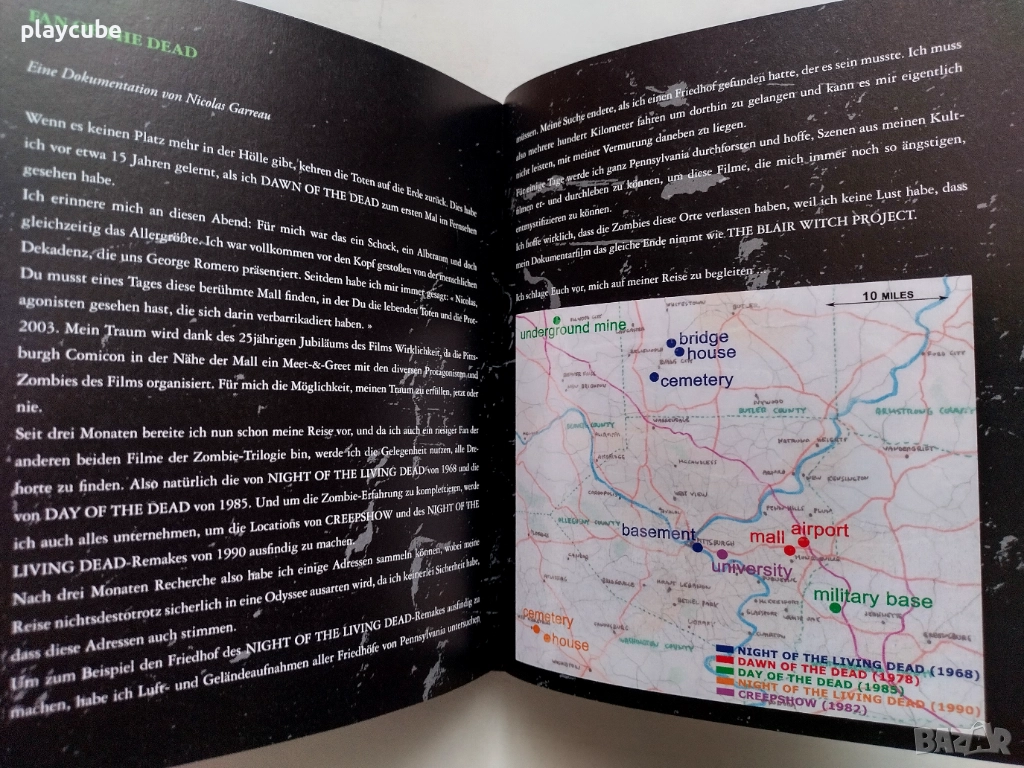 playcube
FAN OF THE DEAD
Eine Dokumentation von Nicolas Garreau
Wenn es keinen Platz mehr in der Hölle gibt, kehren die Toten auf die Erde zurück. Dies habe
ich vor etwa 15 Jahren gelernt, als ich DAWN OF THE DEAD zum ersten Mal im Fernsehen
gesehen habe.
Ich erinnere mich an diesen Abend: Für mich war das ein Schock, ein Albtraum und doch
gleichzeitig das Allergrößte. Ich war vollkommen vor den Kopf gestoßen von der menschlichen
Dekadenz, die uns George Romero präsentiert. Seitdem habe ich mir immer gesagt: « Nicolas,
Du musst eines Tages diese berühmte Mall finden, in der Du die lebenden Toten und die Prot-
agonisten gesehen hast, die sich darin verbarrikadiert haben. »
2003. Mein Traum wird dank des 25jährigen Jubiläums des Films Wirklichkeit, da die Pitts-
burgh Comicon in der Nähe der Mall ein Meet-&-Greet mit den diversen Protagonisten und
Zombies des Films organisiert. Für mich die Möglichkeit, meinen Traum zu erfüllen, jetzt oder
nie.
Seit drei Monaten bereite ich nun schon meine Reise vor, und da ich auch ein riesiger Fan der
anderen beiden Filme der Zombie-Trilogie bin, werde ich die Gelegenheit nutzen, alle Dre-
horte zu finden. Also natürlich die von NIGHT OF THE LIVING DEAD von 1968 und die
von DAY OF THE DEAD von 1985. Und um die Zombie-Erfahrung zu komplettieren, werde
ich auch alles unternehmen, um die Locations von CREEPSHOW und des NIGHT OF THE
LIVING DEAD-Remakes von 1990 ausfindig zu machen.
Nach drei Monaten Recherche also habe ich einige Adressen sammeln können, wobei meine
Reise nichtsdestotrotz sicherlich in eine Odyssee ausarten wird, da ich keinerlei Sicherheit habe,
dass diese Adressen auch stimmen.
Um zum Beispiel den Friedhof des NIGHT OF THE LIVING DEAD-Remakes ausfindig zu
machen, habe ich Luft- und Geländeaufnahmen aller Friedhöfe von Pennsylvania untersuchen
müssen. Meine Suche endete, als ich einen Friedhof gefunden hatte, der es sein musste. Ich muss
also mehrere hundert Kilometer fahren um dorthin zu gelangen und kann es mir eigentlich
nicht leisten, mit meiner Vermutung daneben zu liegen.
Für einige Tage werde ich ganz Pennsylvania durchforsten und hoffe, Szenen aus meinen Kult-
filmen er- und durchleben zu können, um diese Filme, die mich immer noch so ängstigen,
entmystifizieren zu können.
Ich hoffe wirklich, dass die Zombies diese Orte verlassen haben, weil ich keine Lust habe, dass
mein Dokumentarfilm das gleiche Ende nimmt wie THE BLAIR WITCH PROJECT.
Ich schlage Euch vor, mich auf meiner Reise zu begleiten ...
10 MILES
underground mine
bridge
house
cemetery
BUTLER COUNTY
ARMSTRONG COUNTY
ALLEGHENY COUNTY
basement
mall
airport
university
military base
cemetery
house
WASHINGTON COUNTY
NIGHT OF THE LIVING DEAD (1968)
DAWN OF THE DEAD (1978)
DAY OF THE DEAD (1985)
NIGHT OF THE LIVING DEAD (1990)
CREEPSHOW (1982)
BAZAR